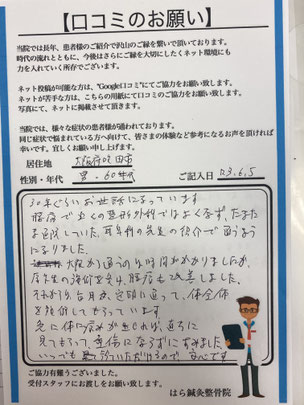 【口コミのお願い】
当院では長年、患者様のご紹介で沢山のご縁を繋いで頂いております。
時代の流れとともに、今後はさらにご縁を大切にしたくネット環境にも
力を入れていく所存でございます。
ネット投稿が可能な方は、"Google口コミ"にてご協力をお願い致します。
ネットが苦手な方は、こちらの用紙にて口コミのご協力をお願い致します。
写真にて、ネットに掲載させて頂きます。
当院では、様々な症状の患者様が通われております。
同じ症状で悩まれている方へ向けて、皆さまの体験など参考になるお声を頂ければ
幸いです。宜しくお願い申し上げます。
居住地 大阪府吹田市
性別・年代 男・60年代 ご記入日 R3.6.5
30年ぐらいお世話になっています
腰痛で近くの整形外科ではよくならず、たまたま
通院していた、耳鼻科の先生の紹介で通うよう
になりました。
大阪から通うので時間がかかりましたが、
原先生の施術を受け、腰痛も改善しました。
それから、毎月か、定期に通って、体全体
を施術してもらっています
急に体に痛みが出れば、直ちに
見てもらって、重傷にならずにすみました。
いつでも診ていただけるので安心です
ご協力有難うございました。
受付スタッフにお渡しをお願い致します。
はら鍼灸整骨院